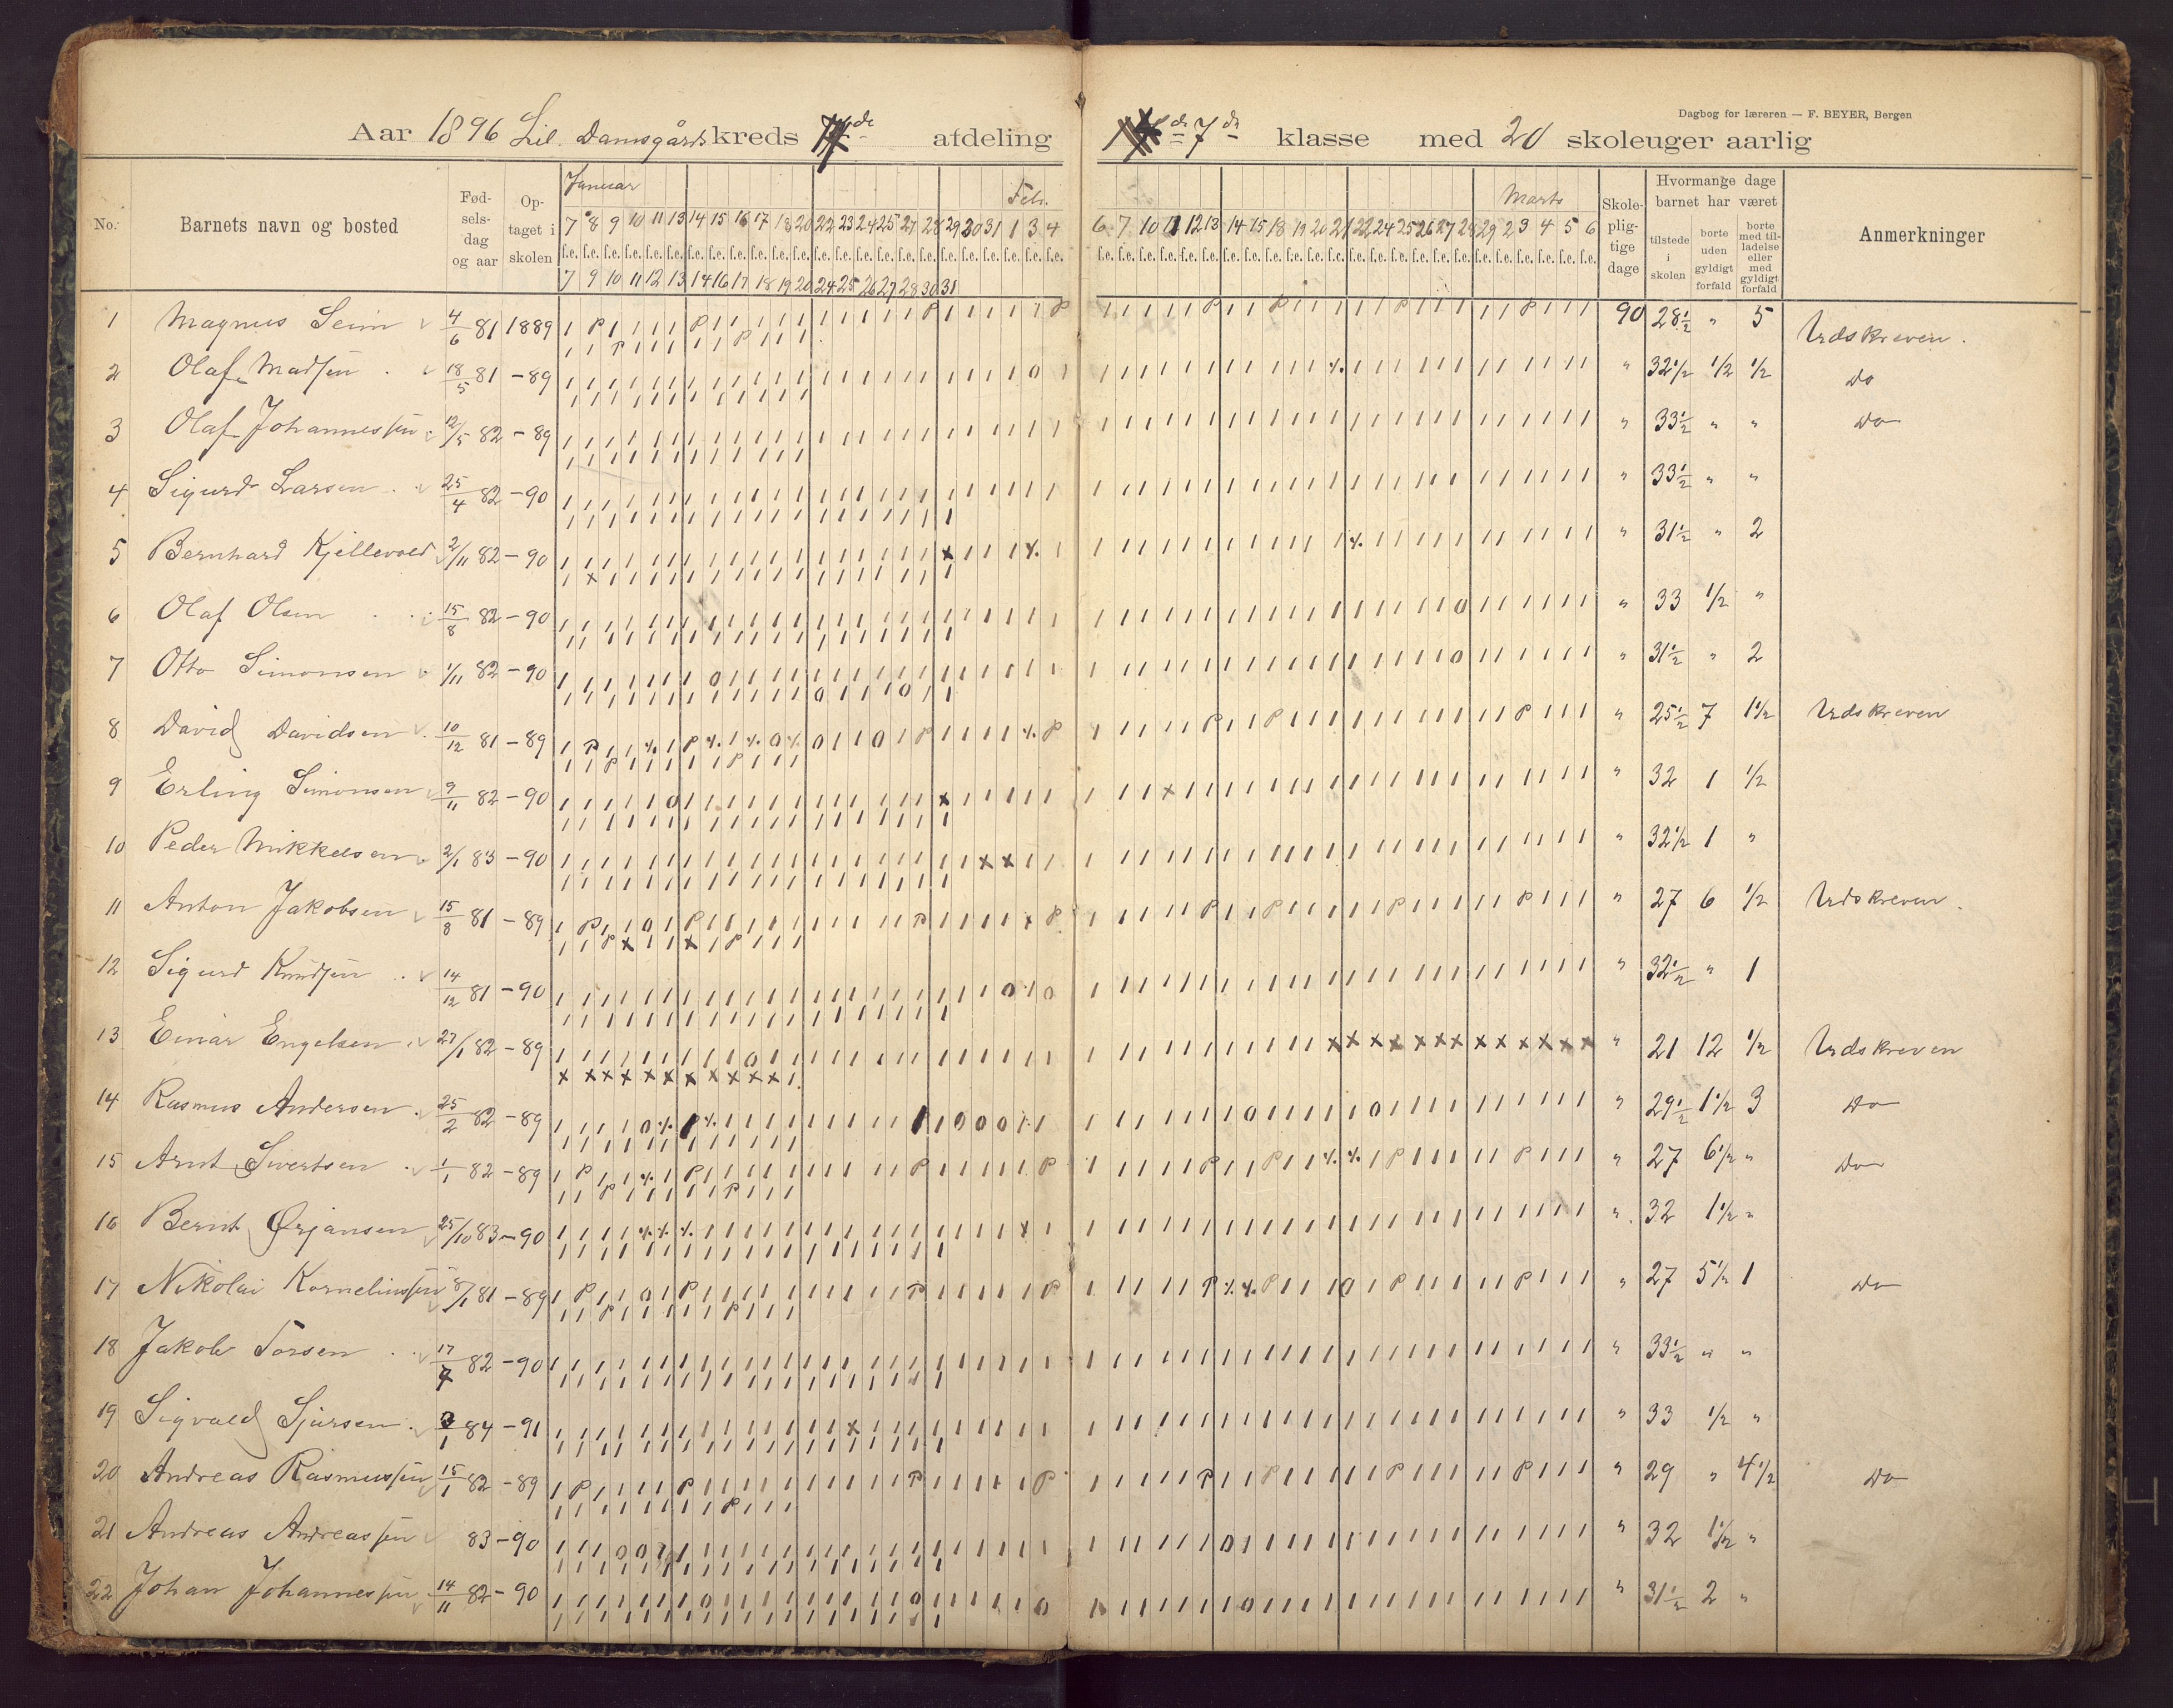 Dagbog for læreren — F. BEYER, Bergen
Aar 1896 Lil. Damsgårds kreds 7de afdeling 7de klasse med 20 skoleuger aarlig
No. Barnets navn og bosted Fødselsdag og aar Optaget i skolen Januar Feb. Marts Skolepligtige dage Hvormange dage barnet har været Anmerkninger
tilstede i skolen borte uden gyldigt forfald borte med tilladelse eller med gyldigt forfald
7 8 9 10 11 13 14 15 16 17 18 20 22 23 24 25 27 28 29 30 31 1 3 4 6 7 10 11 12 13 14 15 18 19 20 21 22 24 25 26 27 28 29 2 3 4 5 6
7 9 10 11 12 13 14 16 17 18 19 20 24 25 26 27 28 30 31
1 Magnus Seim 4/6 81 1889 90 28 1/2 " 5 Udskreven.
2 Olaf Madsen 18/5 81 - 89 " 32 1/2 1/2 1/2 Do
3 Olaf Johannessen 12/5 82 - 89 " 33 1/2 " " Do
4 Sigurd Larsen 25/4 82 - 90 " 33 1/2 " "
5 Bernhard Kjellevold 2/11 82 - 90 " 31 1/2 " 2
6 Olaf Olsen 15/8 82 - 90 " 33 1/2 "
7 Otto Simonsen 1/11 82 - 90 " 31 1/2 " 2
8 David Davidsen 10/12 81 - 89 " 25 1/2 7 1 1/2 Udskreven
9 Erling Simonsen 9/11 82 - 90 " 32 1 1/2
10 Peder Mikkelsen 2/1 83 - 90 " 32 1/2 1 "
11 Anton Jakobsen 15/8 81 - 89 " 27 6 1/2 Udskreven.
12 Sigurd Knudsen 14/12 81 - 90 " 32 1/2 " 1
13 Einar Engelsen 27/1 82 - 89 " 21 12 1/2 Udskreven
14 Rasmus Andersen 25/2 82 - 89 " 29 1/2 1 1/2 3 Do
15 Arnt Sivertsen 1/1 82 - 89 " 27 6 1/2 " Do
16 Bernt Ørjansen 25/10 83 - 90 " 32 1 1/2 "
17 Nikolai Korneliussen 8/1 81 - 89 " 27 5 1/2 1 Do
18 Jakob Torsen 17/9 82 - 90 " 33 1/2 " "
19 Sigvald Sjursen 84 - 91 " 33 1/2 "
20 Andreas Rasmussen 15/1 82 - 89 " 29 " 4 1/2 Do
21 Andreas Andreassen 83 - 90 " 32 1 1/2 "
22 Johan Johannessen 14/11 82 - 90 " 31 1/2 2 "